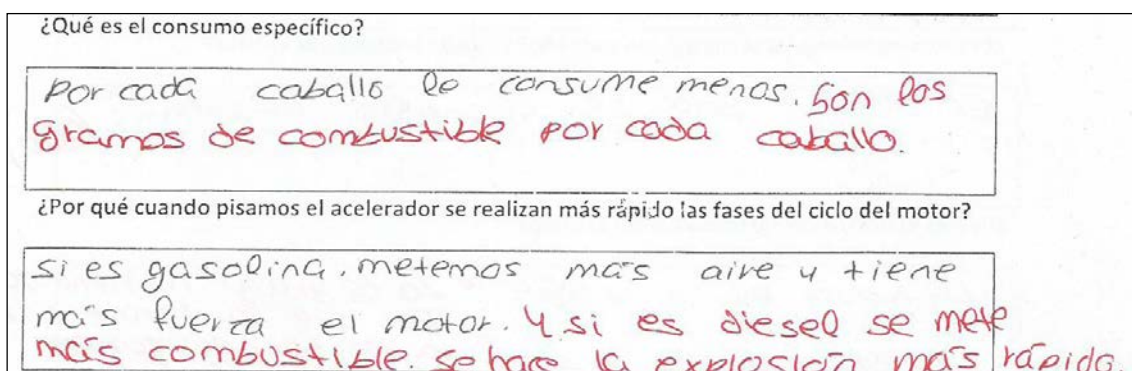 ¿Qué es el consumo específico?
Por cada caballo lo consume menos. Son los
gramos de combustible por cada caballo.
¿Por qué cuando pisamos el acelerador se realizan más rápido las fases del ciclo del motor?
si es gasolina. metemos más aire y tiene
más fuerza el motor. Y si es diesel se mete
más combustible. se hace la explosión más rápida.